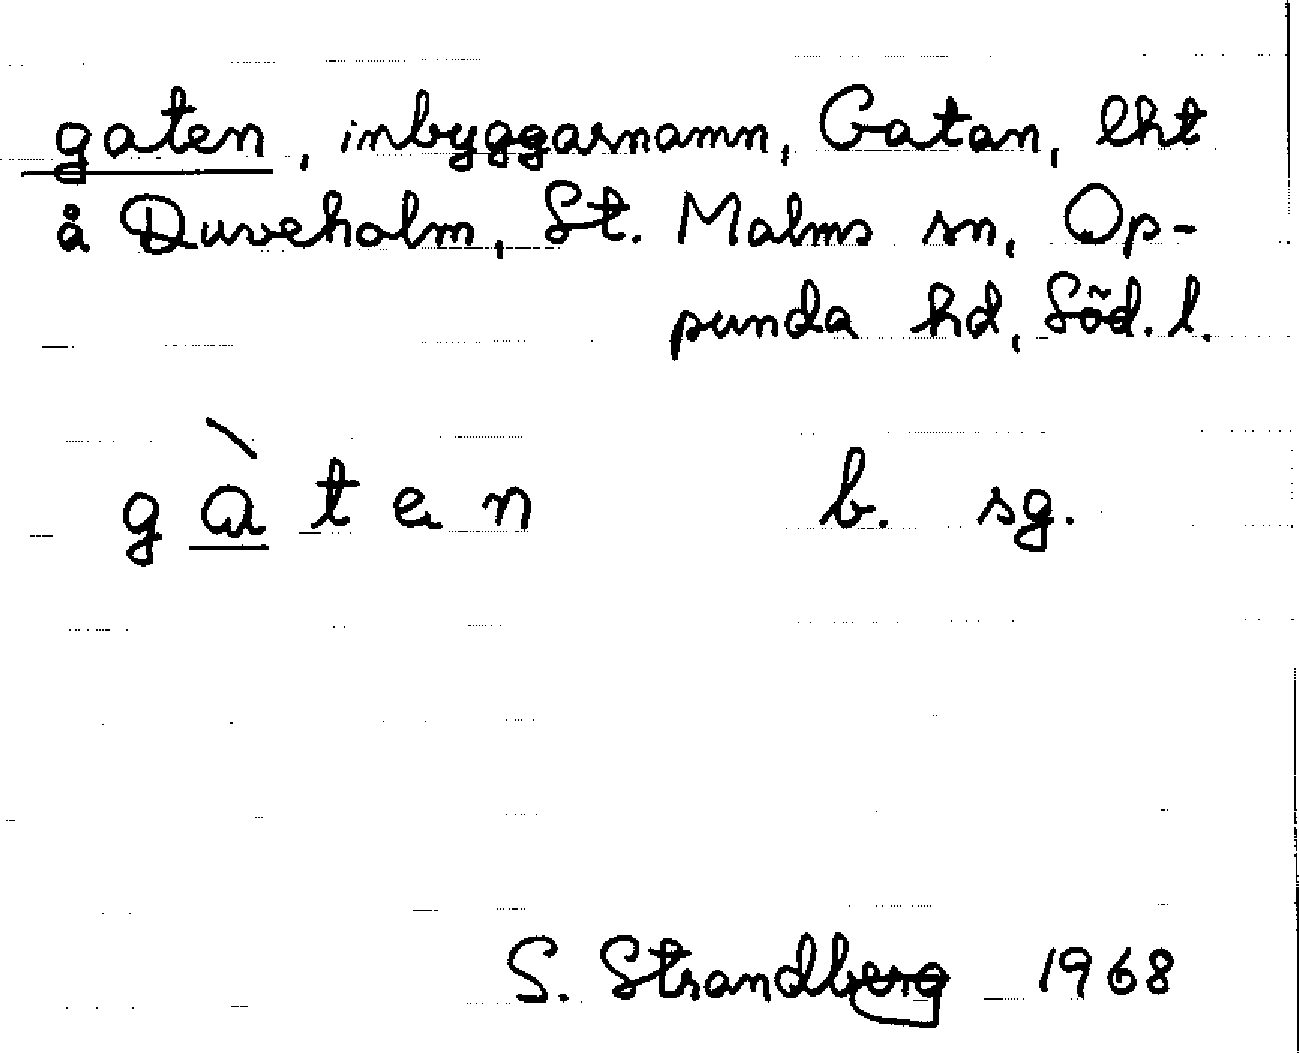 gaten, inbyggarnamn, Gatan, lht
å Duveholm, St. Malms sn, Op-
punda hd, Söd. l.
gàten b. sg.
S. Strandberg 1968